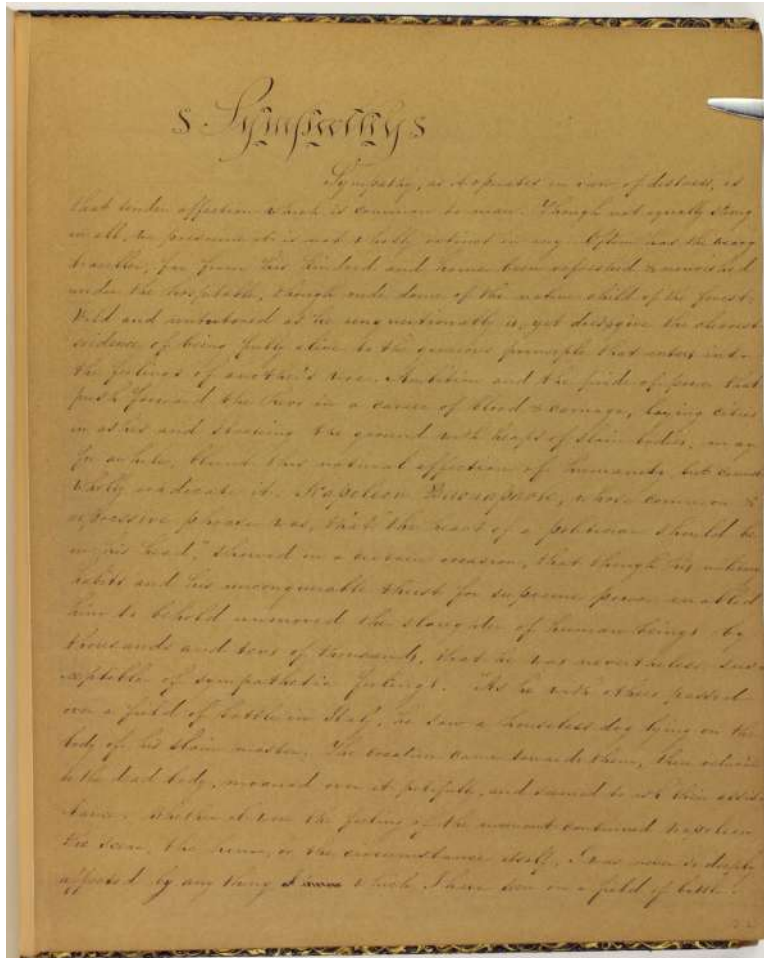 S Sympathy S
Sympathy, as it operates in view of distress, is
that tender affection which is common to man. Though not equally strong
in all, we presume it is not wholly extinct in any. Often has the weary
traveller, far from his kindred and home been refreshed & nourished
under the hospitable, though rude dome of the native child of the forest.
Wild and untutored as he unquestionably is, yet does give the clearest
evidence of being fully alive to the generous principle that enters into
the feelings of another's woe. Ambition and the pride of power that
push forward the hero in a career of blood & carnage, laying cities
in ashes and strewing the ground with heaps of slain bodies, may
for awhile, blunt this natural affection of humanity, but cannot
wholly eradicate it. Napoleon Buonaparte, whose common &
expressive phrase was, that "the heart of a politician should be
in his head," showed on a certain occasion, that though his military
habits and his unconquerable thirst for supreme power enabled
him to behold unmoved the slaughter of human beings by
thousands and tens of thousands, that he was nevertheless sus-
ceptible of sympathetic feelings. "As he with others passed
over a field of battle in Italy, he saw a houseless dog lying on the
body of his slain master. The creature came towards them, then returned
to the dead body, moaned over it pitifully, and seemed to ask their assis-
tance. Whether it were the feeling of the moment continued Napoleon
the scene, the hour, or the circumstance itself, I was never so deeply
affected by any thing which I have seen on a field of battle.